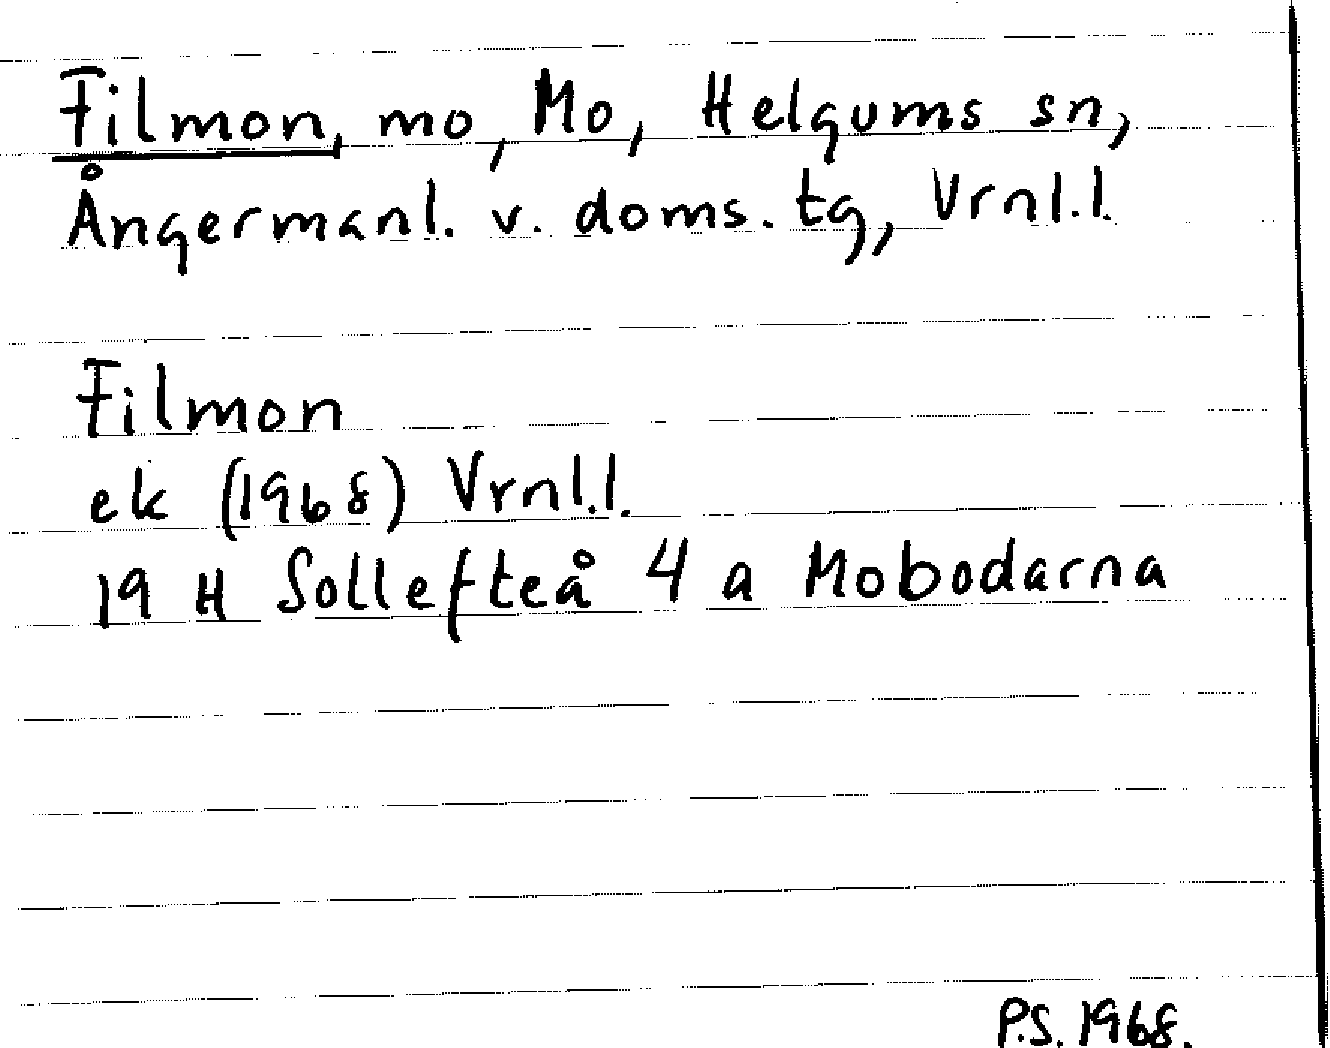 Filmon, mo, Mo, Helgums sn,
Ångermanl. v. doms. tg, Vrnl.l.
Filmon
ek (1968) Vrnl.l.
19 H Sollefteå 4 a Mobodarna
P.S. 1968.